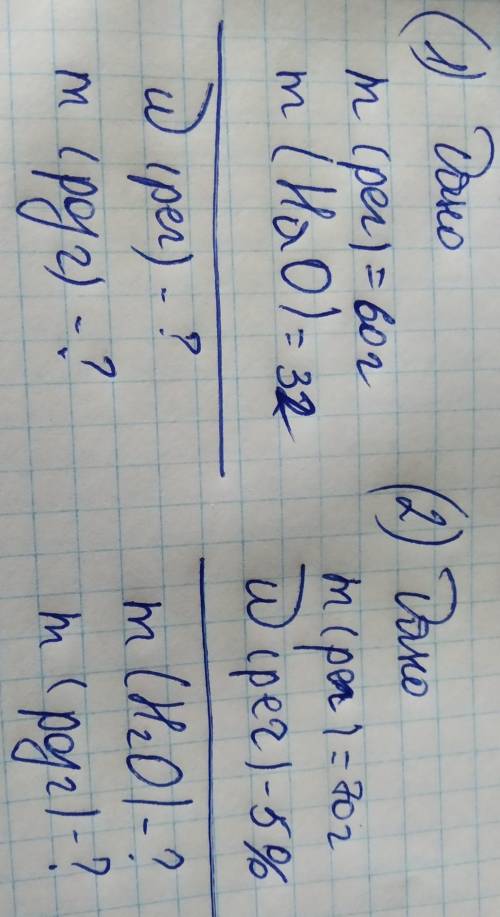 (1) Дано
m (реч) = 60г
m (H2O) = 32
w (реч) - ?
m (розч) - ?
(2) Дано
m (реч) = 70г
w (реч) - 5%
m (H2O) - ?
m (розч) - ?